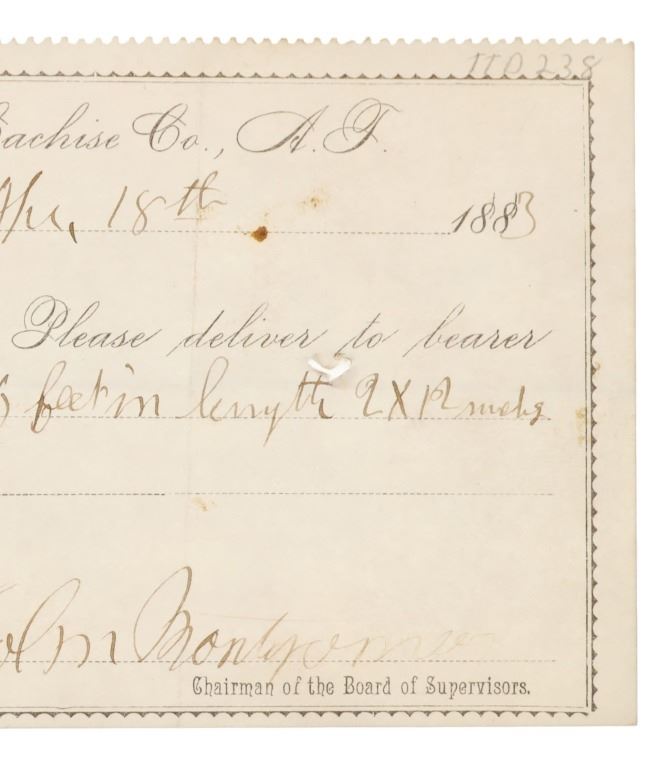 IID 238
Cachise Co., A. T.
Apr. 18th 1883
Please deliver to bearer
feet in length 2 X 12 inches
John Montgomery
Chairman of the Board of Supervisors.